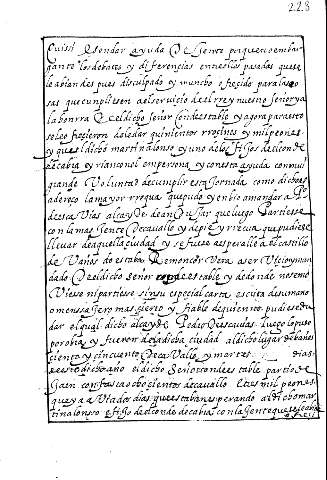 228
quiso demandar ayuda de gente porque no embar
gante los debates y diferencias entrellos pasadas que se
le abian despues disculpado y muncho ofrecido para las co
sas que cunpliesen al servicio del rrey nuestro señor y a
la honrra del dicho señor condestable y agora para esto
solo fizieron doledar quinientos rrocines y mil peones
y quel dicho martin alonso y uno de los fijos del conde
de cabra y rian con el en persona y con esta ayuda con mui
grande voluntad de cunplir esta jornada como dicho es
adereço la mayor rroqua que pudo y enbio a mandar a P
descavias alcayde de andujar que luego partiese
con la mas gente de cavallo y de pie y rrecua que pudiese
llevar de aquella ciudad y se fuese a esperalle al castillo
de vaños do estava Remon cor vera a ser vicio y man
dado del dicho señor condestable y dende no se mo
viese ni partiese sin su especial carta escrita de su mano
o mensajero mas cierto y fiable de quien lo pudiese du
dar el qual dicho alcayde Pedro descavias luego lo puso
por obra y fueron de la dicha ciudad al dicho lugar de baños
ciento y cincuenta de cavallo y martes dias
deste dicho año el dicho señor condestable partio de
Jaen con fasta ochocientos de cavallo et tres mil peones
que ya avia dos dias que estaba esperando al dicho mar
tin alonso e fijo del conde de cabra con la gente que se le abia